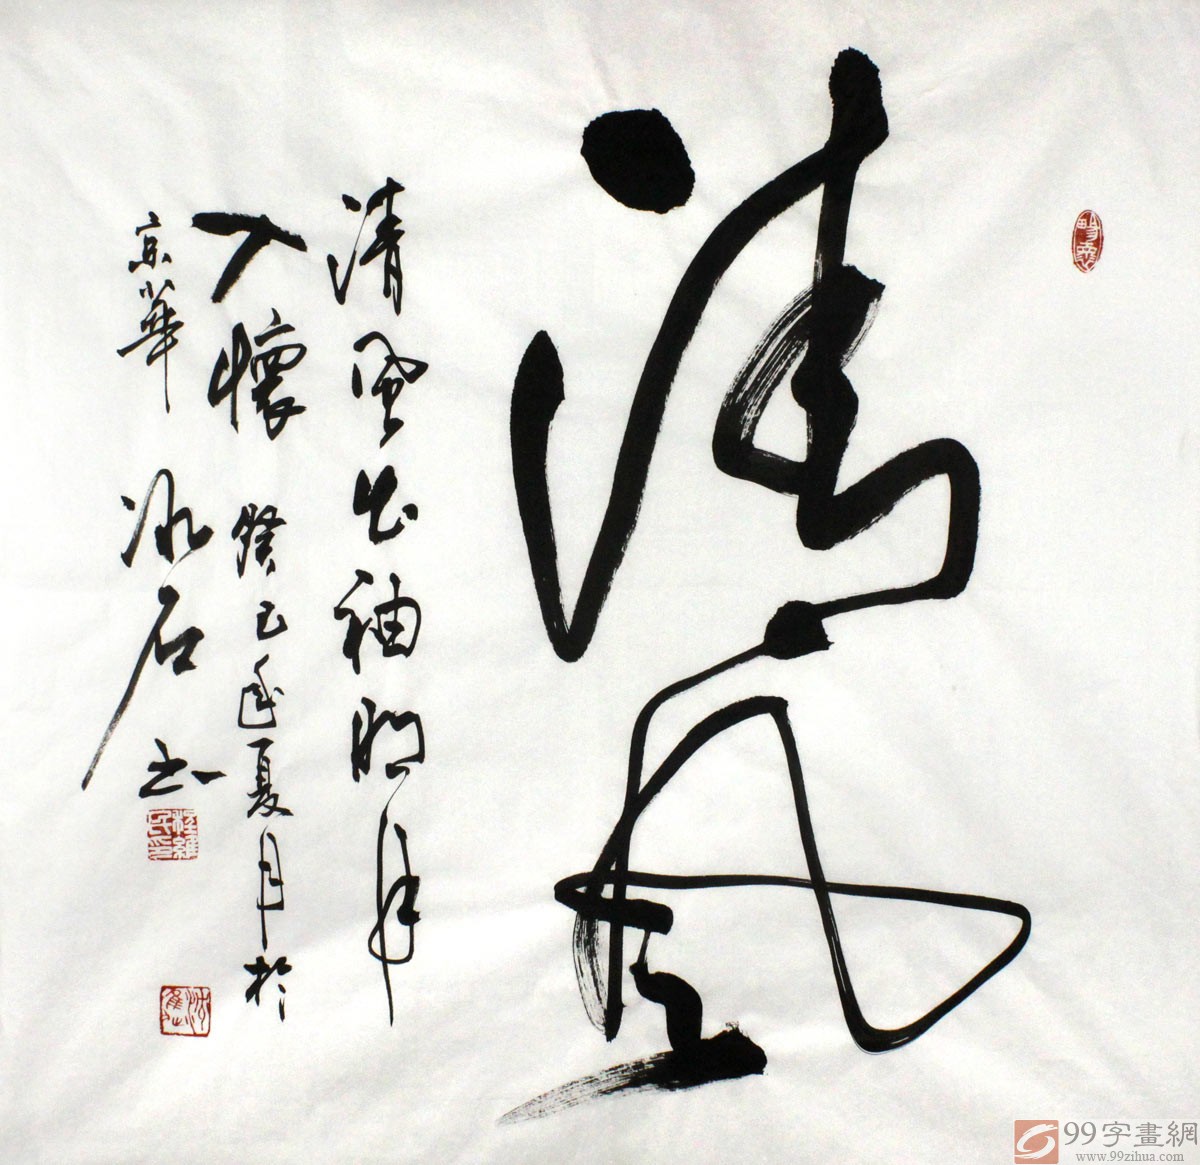 清风
清风出袖明月
入懷癸巳年夏月於
京華冰石书
99字畫網
www.99zihua.com